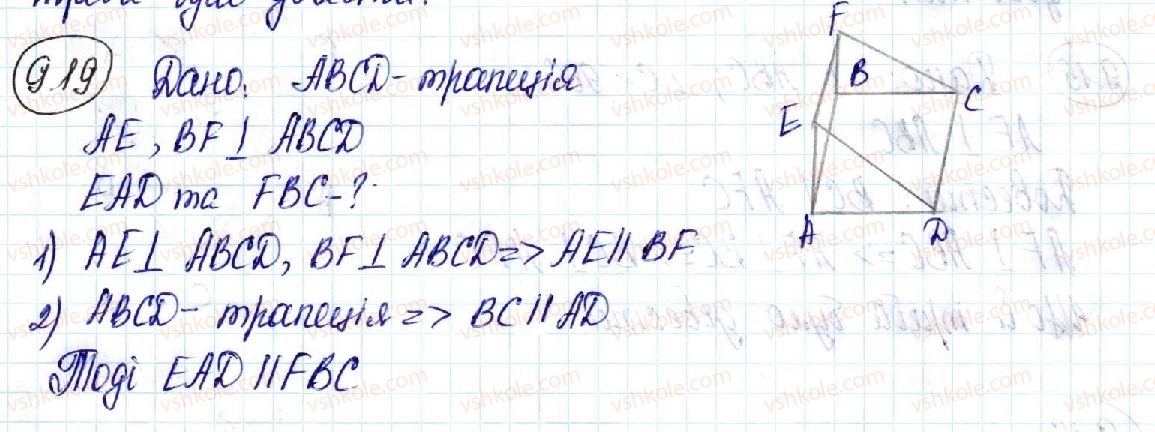 919 Дано: ABCD - трапеція
AE, BF ⊥ ABCD
EAD та FBC - ?
1) AE ⊥ ABCD, BF ⊥ ABCD => AE || BF
2) ABCD - трапеція => BC || AD
Тоді EAD || FBC
F
B
C
E
A
D